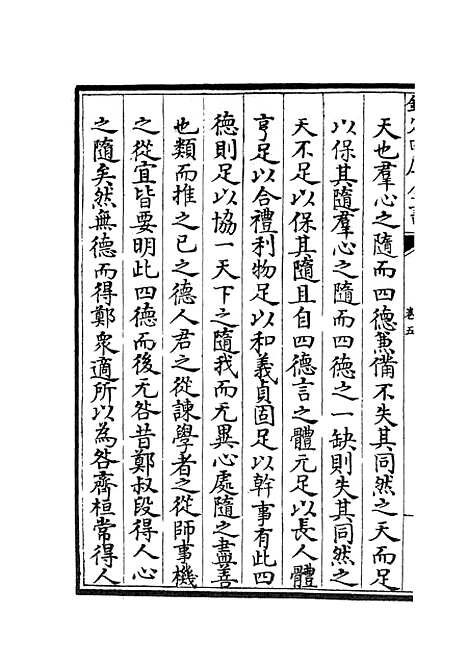 天也羣心之隨而四德兼備不失其同然之天而足
以保其隨羣心之隨而四德之一缺則失其同然之
天不足以保其隨且自四德言之體元足以長人體
亨足以合禮利物足以和義貞固足以幹事有此四
德則足以協一天下之隨我而无異心處隨之盡善
也類而推之已之德人君之從諫學者之從師事機
之從宜皆要明此四德而後无咎昔鄭叔段得人心
之隨矣然無德而得鄭衆適所以為咎齊桓常得人
卷五